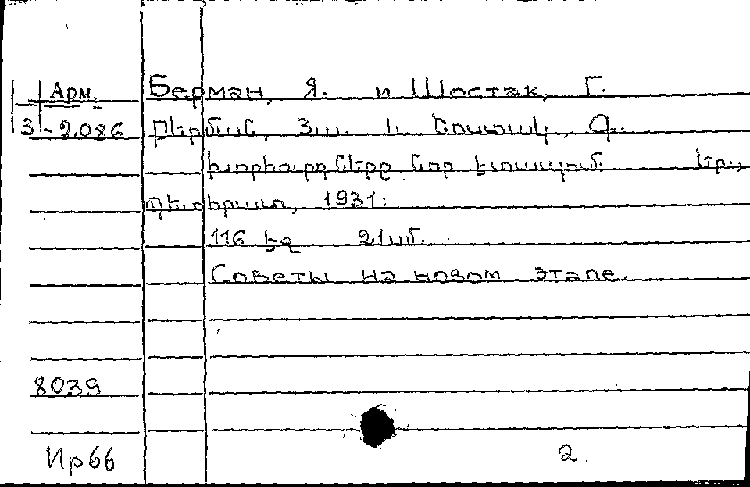 Арм. Берман, Я. и Шостак, Г.
3-2.086 Բերման, Յա. և Շոստակ, Գ.
Խորհուրդները նոր էտապում. Եր.,
Պետհրատ, 1931.
116 էջ 21սմ.
Советы на новом этапе.
8039
Ир66 2.